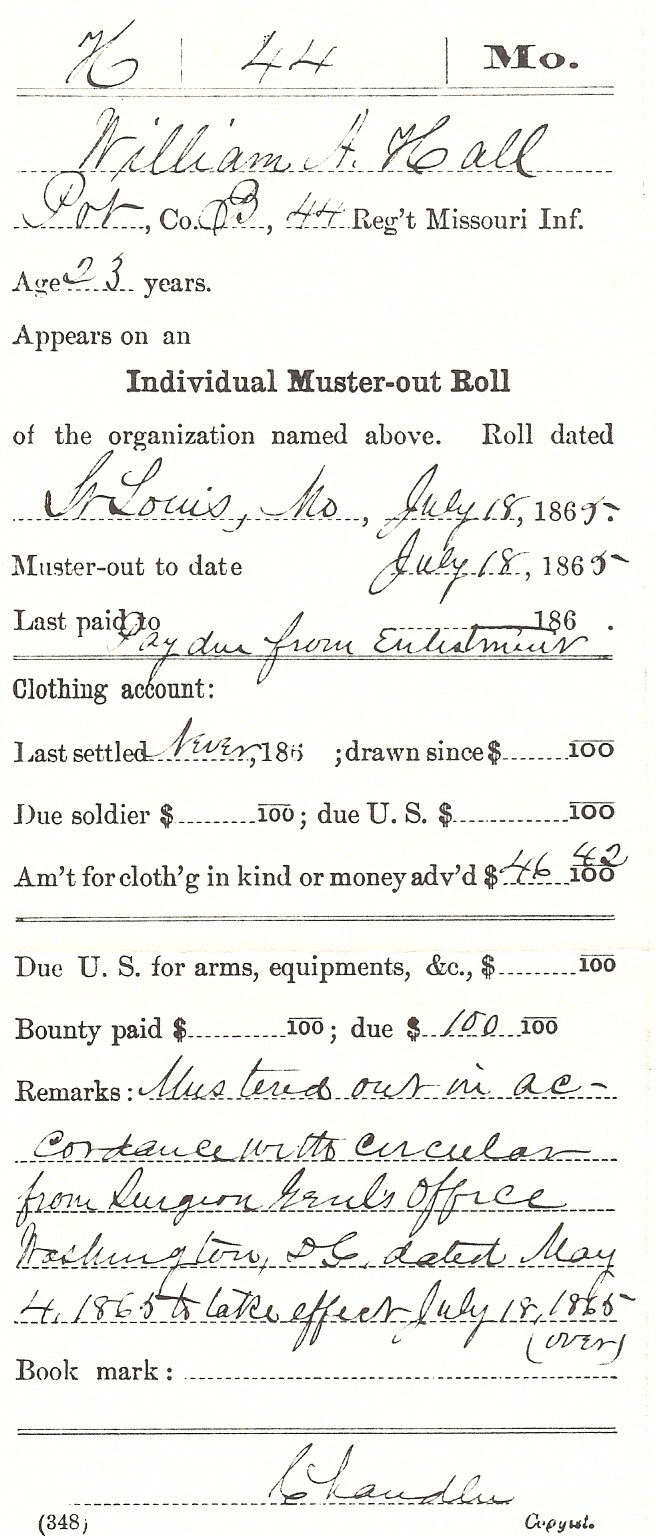 H | 44 | Mo.
William A. Hall
Pvt, Co. B, 44 Reg't Missouri Inf.
Age 23 years.
Appears on an
Individual Muster-out Roll
of the organization named above. Roll dated
St Louis, Mo, July 18, 1865.
Muster-out to date July 18, 1865
Last paid to 186 .
Pay due from Enlistment
Clothing account:
Last settled Never, 186 ; drawn since $ 100
Due soldier $ 100; due U. S. $ 100
Am't for cloth'g in kind or money adv'd $ 46 42/100
Due U. S. for arms, equipments, &c., $ 100
Bounty paid $ 100; due $ 100 100
Remarks: Mustered out in ac-
cordance with circular
from Surgeon Genl's Office
Washington, D.C. dated May
4, 1865 to take effect July 18, 1865
(over)
Book mark:
Chandler
(348) Copyist.